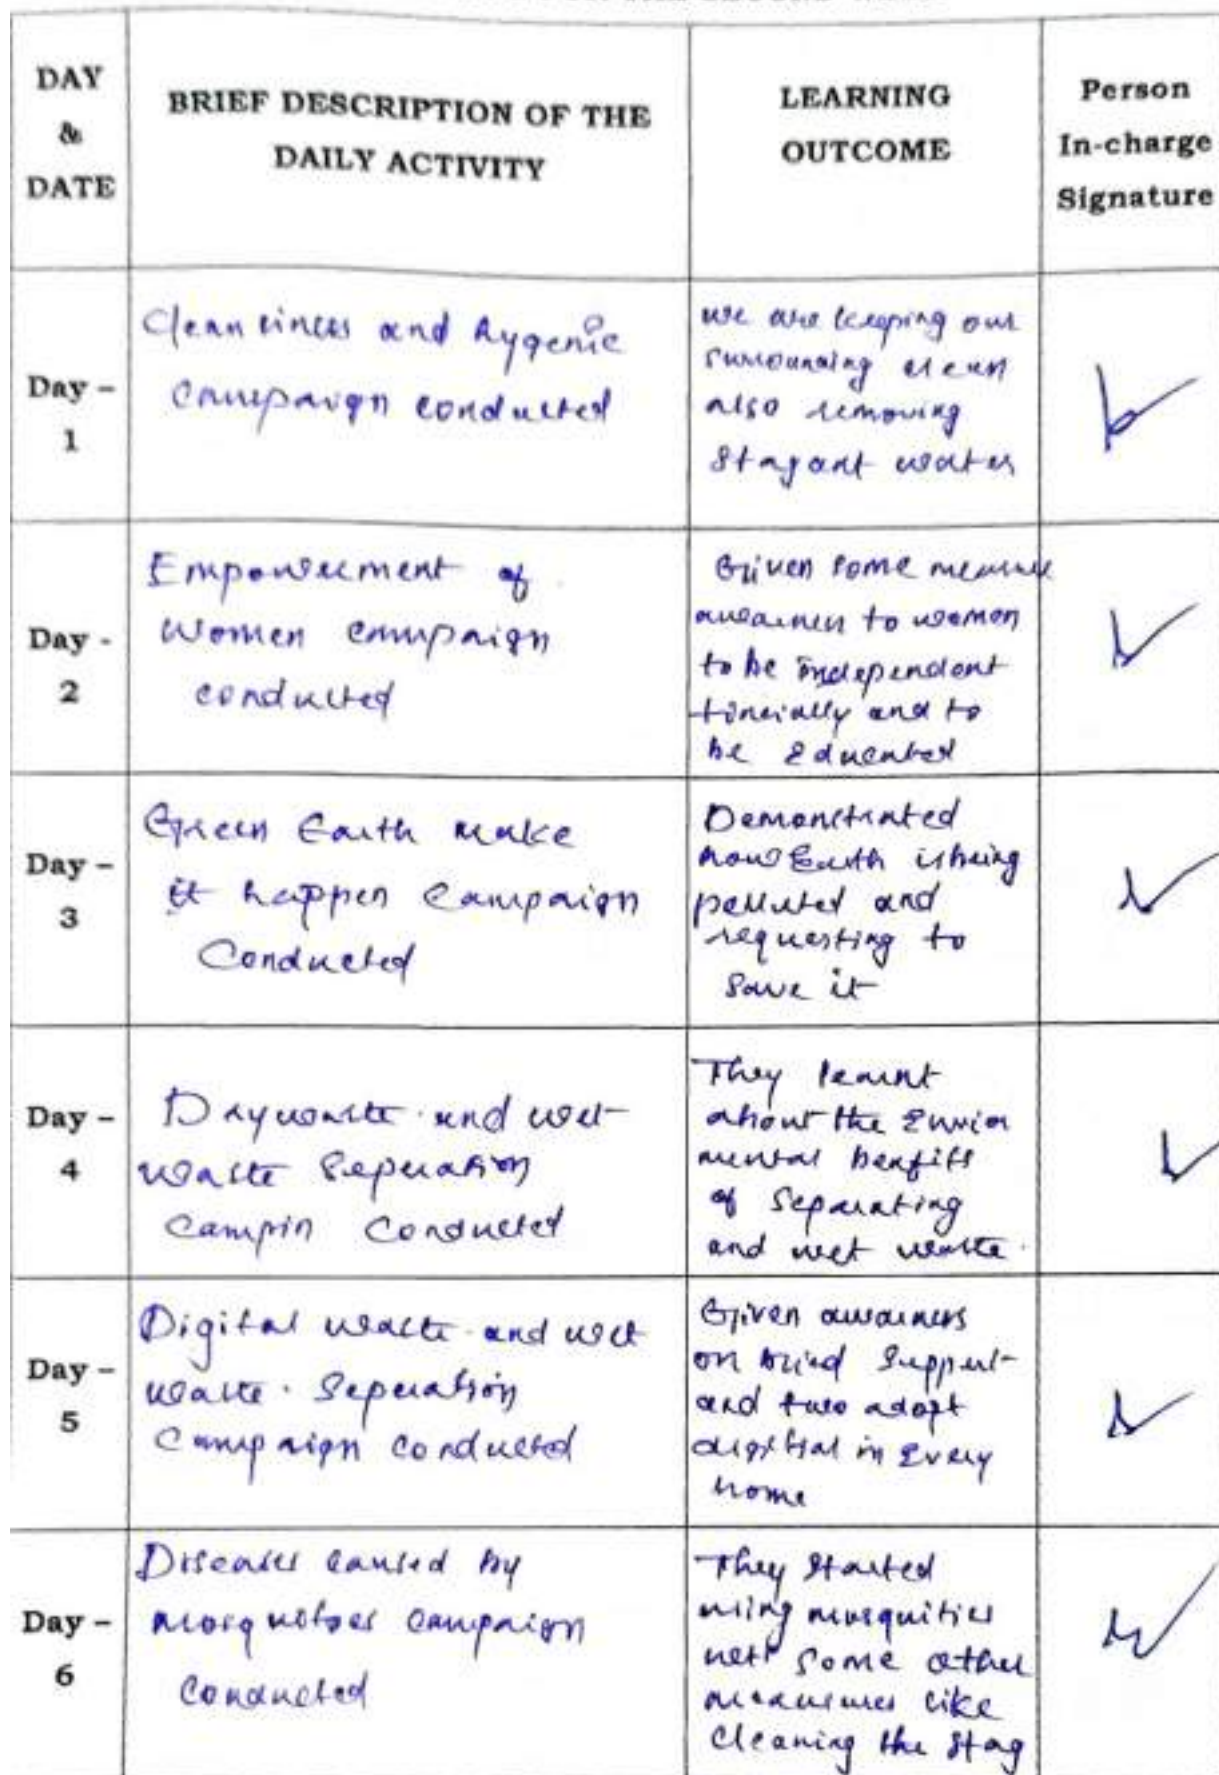 DAY
&
DATE
BRIEF DESCRIPTION OF THE
DAILY ACTIVITY
LEARNING
OUTCOME
Person
In-charge
Signature
Day –
1
Cleanliness and hygenic
campaign conducted
we are keeping our
surrounding clean
also removing
Stagant water
Day -
2
Empowerment of
Women campaign
conducted
Given some measure
awarness to women
to be independent
and to
be Educated
Day –
3
Green Earth make
it happen Campaign
Conducted
Demonstrated
how Earth is being
polluted and
requesting to
Save it
Day –
4
Drywaste and wet
waste Seperation
Campin Conducted
They learnt
about the Enviro
mental benfits
of Separating
and wet waste.
Day –
5
Digital waste and wet
waste Seperation
Campaign conducted
Given awarness
on Support
and two adopt
digital in Every
home
Day –
6
Diseases caused by
mosquitoes campaign
conducted
They Started
using mosquities
nett Some other
measures like
Cleaning the Stag